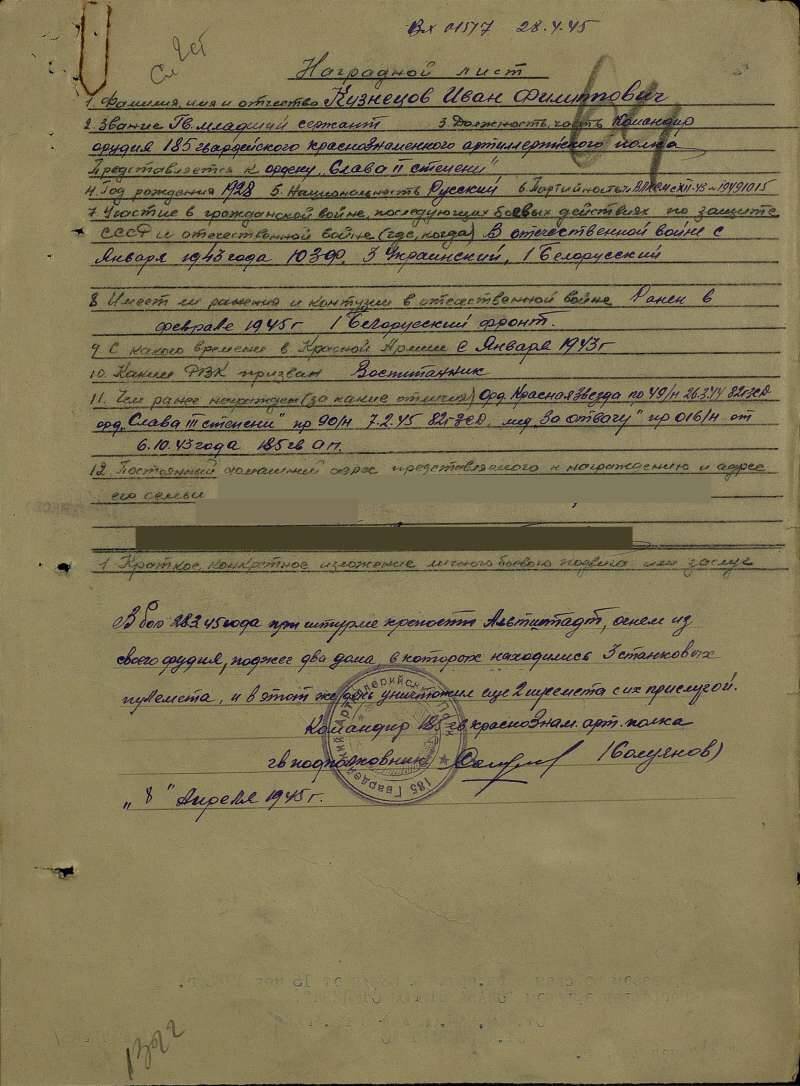 Вх 01517 28.4.45
Наградной лист
1. Фамилия, имя и отчество Кузнецов Иван Филиппович
2. Звание Гв. младший сержант 3. Должность, часть Командир
орудия 185 гвардейского краснознаменного артиллерийского полка
Представляется к ордену „Слава II степени"
4. Год рождения 1928 5. Национальность Русский 6. Партийность ВЛКСМ с XII-43
7. Участие в гражданской войне, последующих боевых действиях по защите
СССР и отечественной войне (где, когда) В отечественной войне с
Января 1943 года ЮЗФ, 3 Украинский, 1 Белорусский
8. Имеет ли ранения и контузии в отечественной войне Ранен в
феврале 1945 г 1 Белорусский фронт.
9. С какого времени в Красной Армии С Января 1943 г
10. Каким РВК призван Воспитанник
11. Чем ранее награжден (за какие отличия) Орд. Красная Звезда 82 гв сд
орд. „Слава III степени" пр 90/н 7.2.45 82 гв сд. мед. „За отвагу" пр 016/н от
6.10.43 года 185 гв ап.
12. Постоянный домашний адрес представляемого к награждению и адрес
его семьи
1 Краткое, конкретное изложение личного боевого подвига или заслуг
В бою 28.3.45 года при штурме крепости Альтштадт, огнем из
своего орудия, поджег два дома, в которых находились 3 станковых
пулемета, и в этот же день уничтожил еще 2 пулемета с их прислугой.
Командир 185 гв краснознам. арт. полка
гв подполковник (Солуянов)
„8" Апреля 1945 г.
185 Гвардейский Артиллерийский Полк